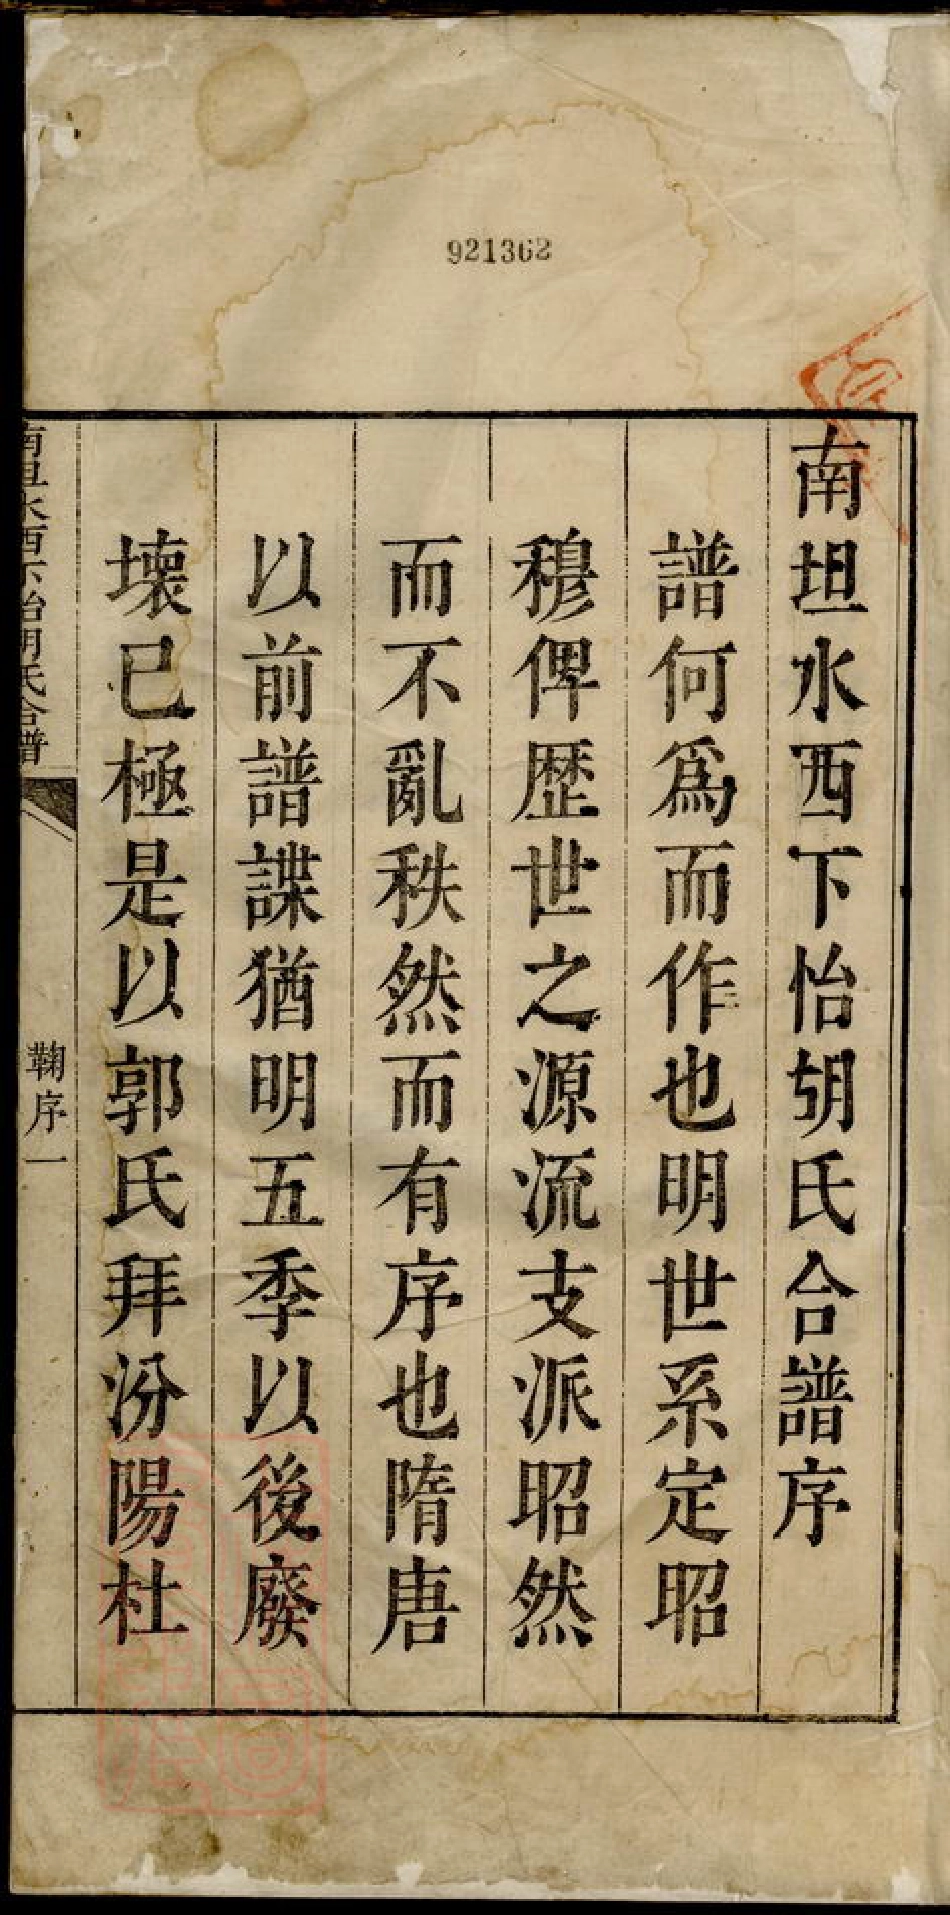 921362
南坦水西下怡胡氏合譜序
譜何爲而作也明世系定昭
穆俾歴世之源流支派昭然
而不亂秩然而有序也隋唐
以前譜諜猶明五季以後廢
壊已極是以郭氏拜汾陽杜
南坦水西下怡胡氏合譜
鞠序一